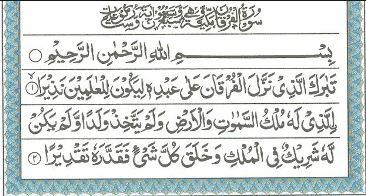 سُورَةُ الْفُرْقَانِ مَكِّيَّةٌ وَهِيَ سَبْعٌ وَسَبْعُونَ اٰيَةً وَسِتُّ رُكُوْعَاتٍ
بِسْمِ اللهِ الرَّحْمٰنِ الرَّحِيْمِ
تَبٰرَكَ الَّذِىْ نَزَّلَ الْفُرْقَانَ عَلٰى عَبْدِهٖ لِيَكُوْنَ لِلْعٰلَمِيْنَ نَذِيْرًا ۙ﴿۱﴾
ۨالَّذِىْ لَهٗ مُلْكُ السَّمٰوٰتِ وَالْاَرْضِ وَلَمْ يَتَّخِذْ وَلَدًا وَّلَمْ يَكُنْ
لَّهٗ شَرِيْكٌ فِى الْمُلْكِ وَخَلَقَ كُلَّ شَىْءٍ فَقَدَّرَهٗ تَقْدِيْرًا ﴿۲﴾